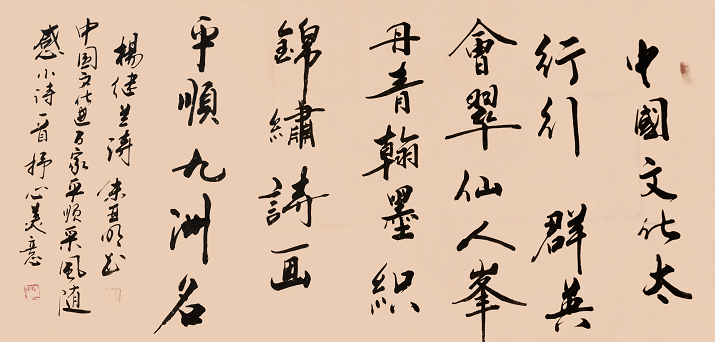 中國文化太
行引 群英
會翠仙人峯
丹青翰墨織
錦繡詩画
平順九洲名
楊 诗
中国文化进万家平顺采风随
感小诗一首抒心美意